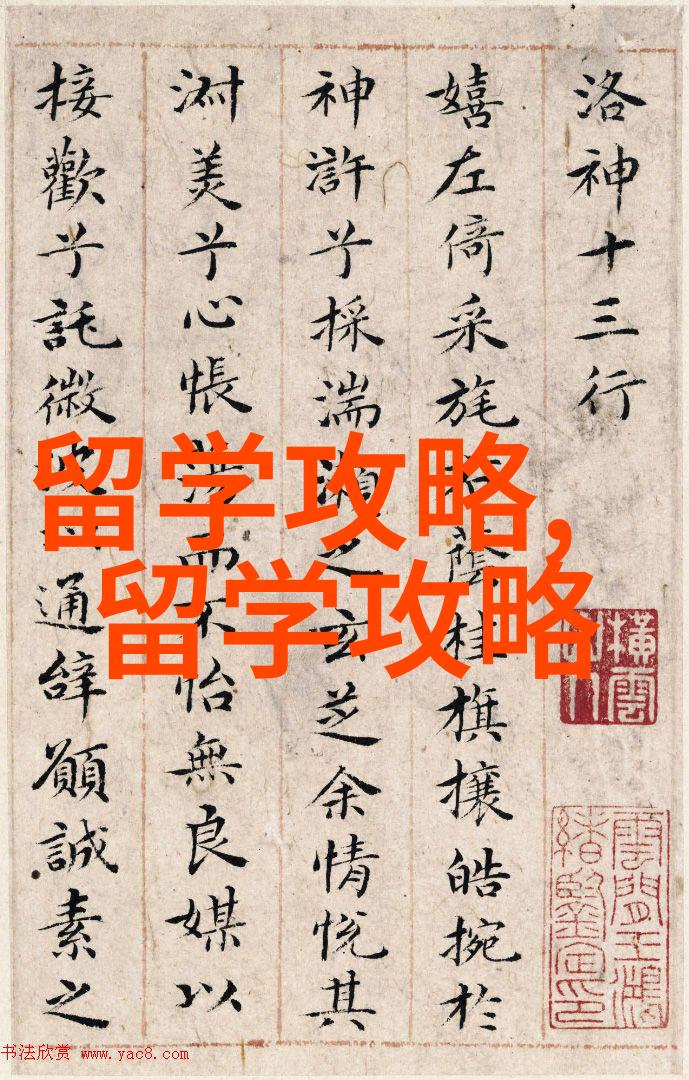 洛神十三行
嬉左倚采旄
桂旗攘皓捥於
神浒兮採湍瀨之玄芝余情悅其
淋美兮心悵
而不怡無良媒以
接歡兮託微
通辞願誠素之
留学攻略,
留学攻略
書法欣赏 www.yac8.com